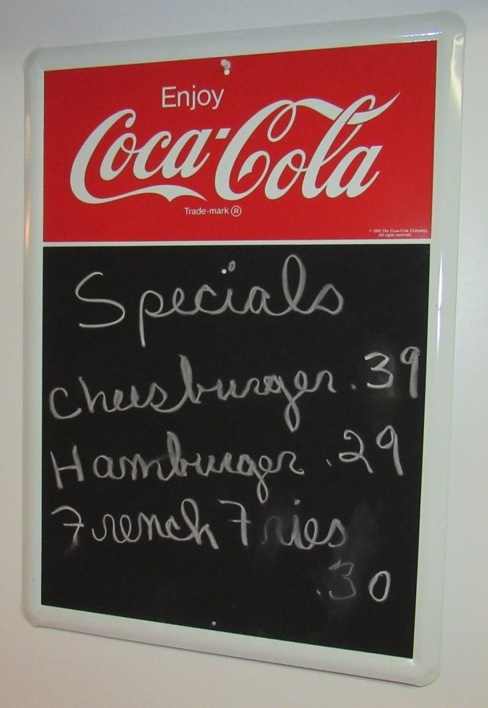 Enjoy
Coca-Cola
Trade-mark ®
Specials
Cheesburger .39
Hamburger .29
French Fries
.30